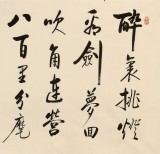 醉裏挑燈
看劍夢回
吹角連營
八百里分麾